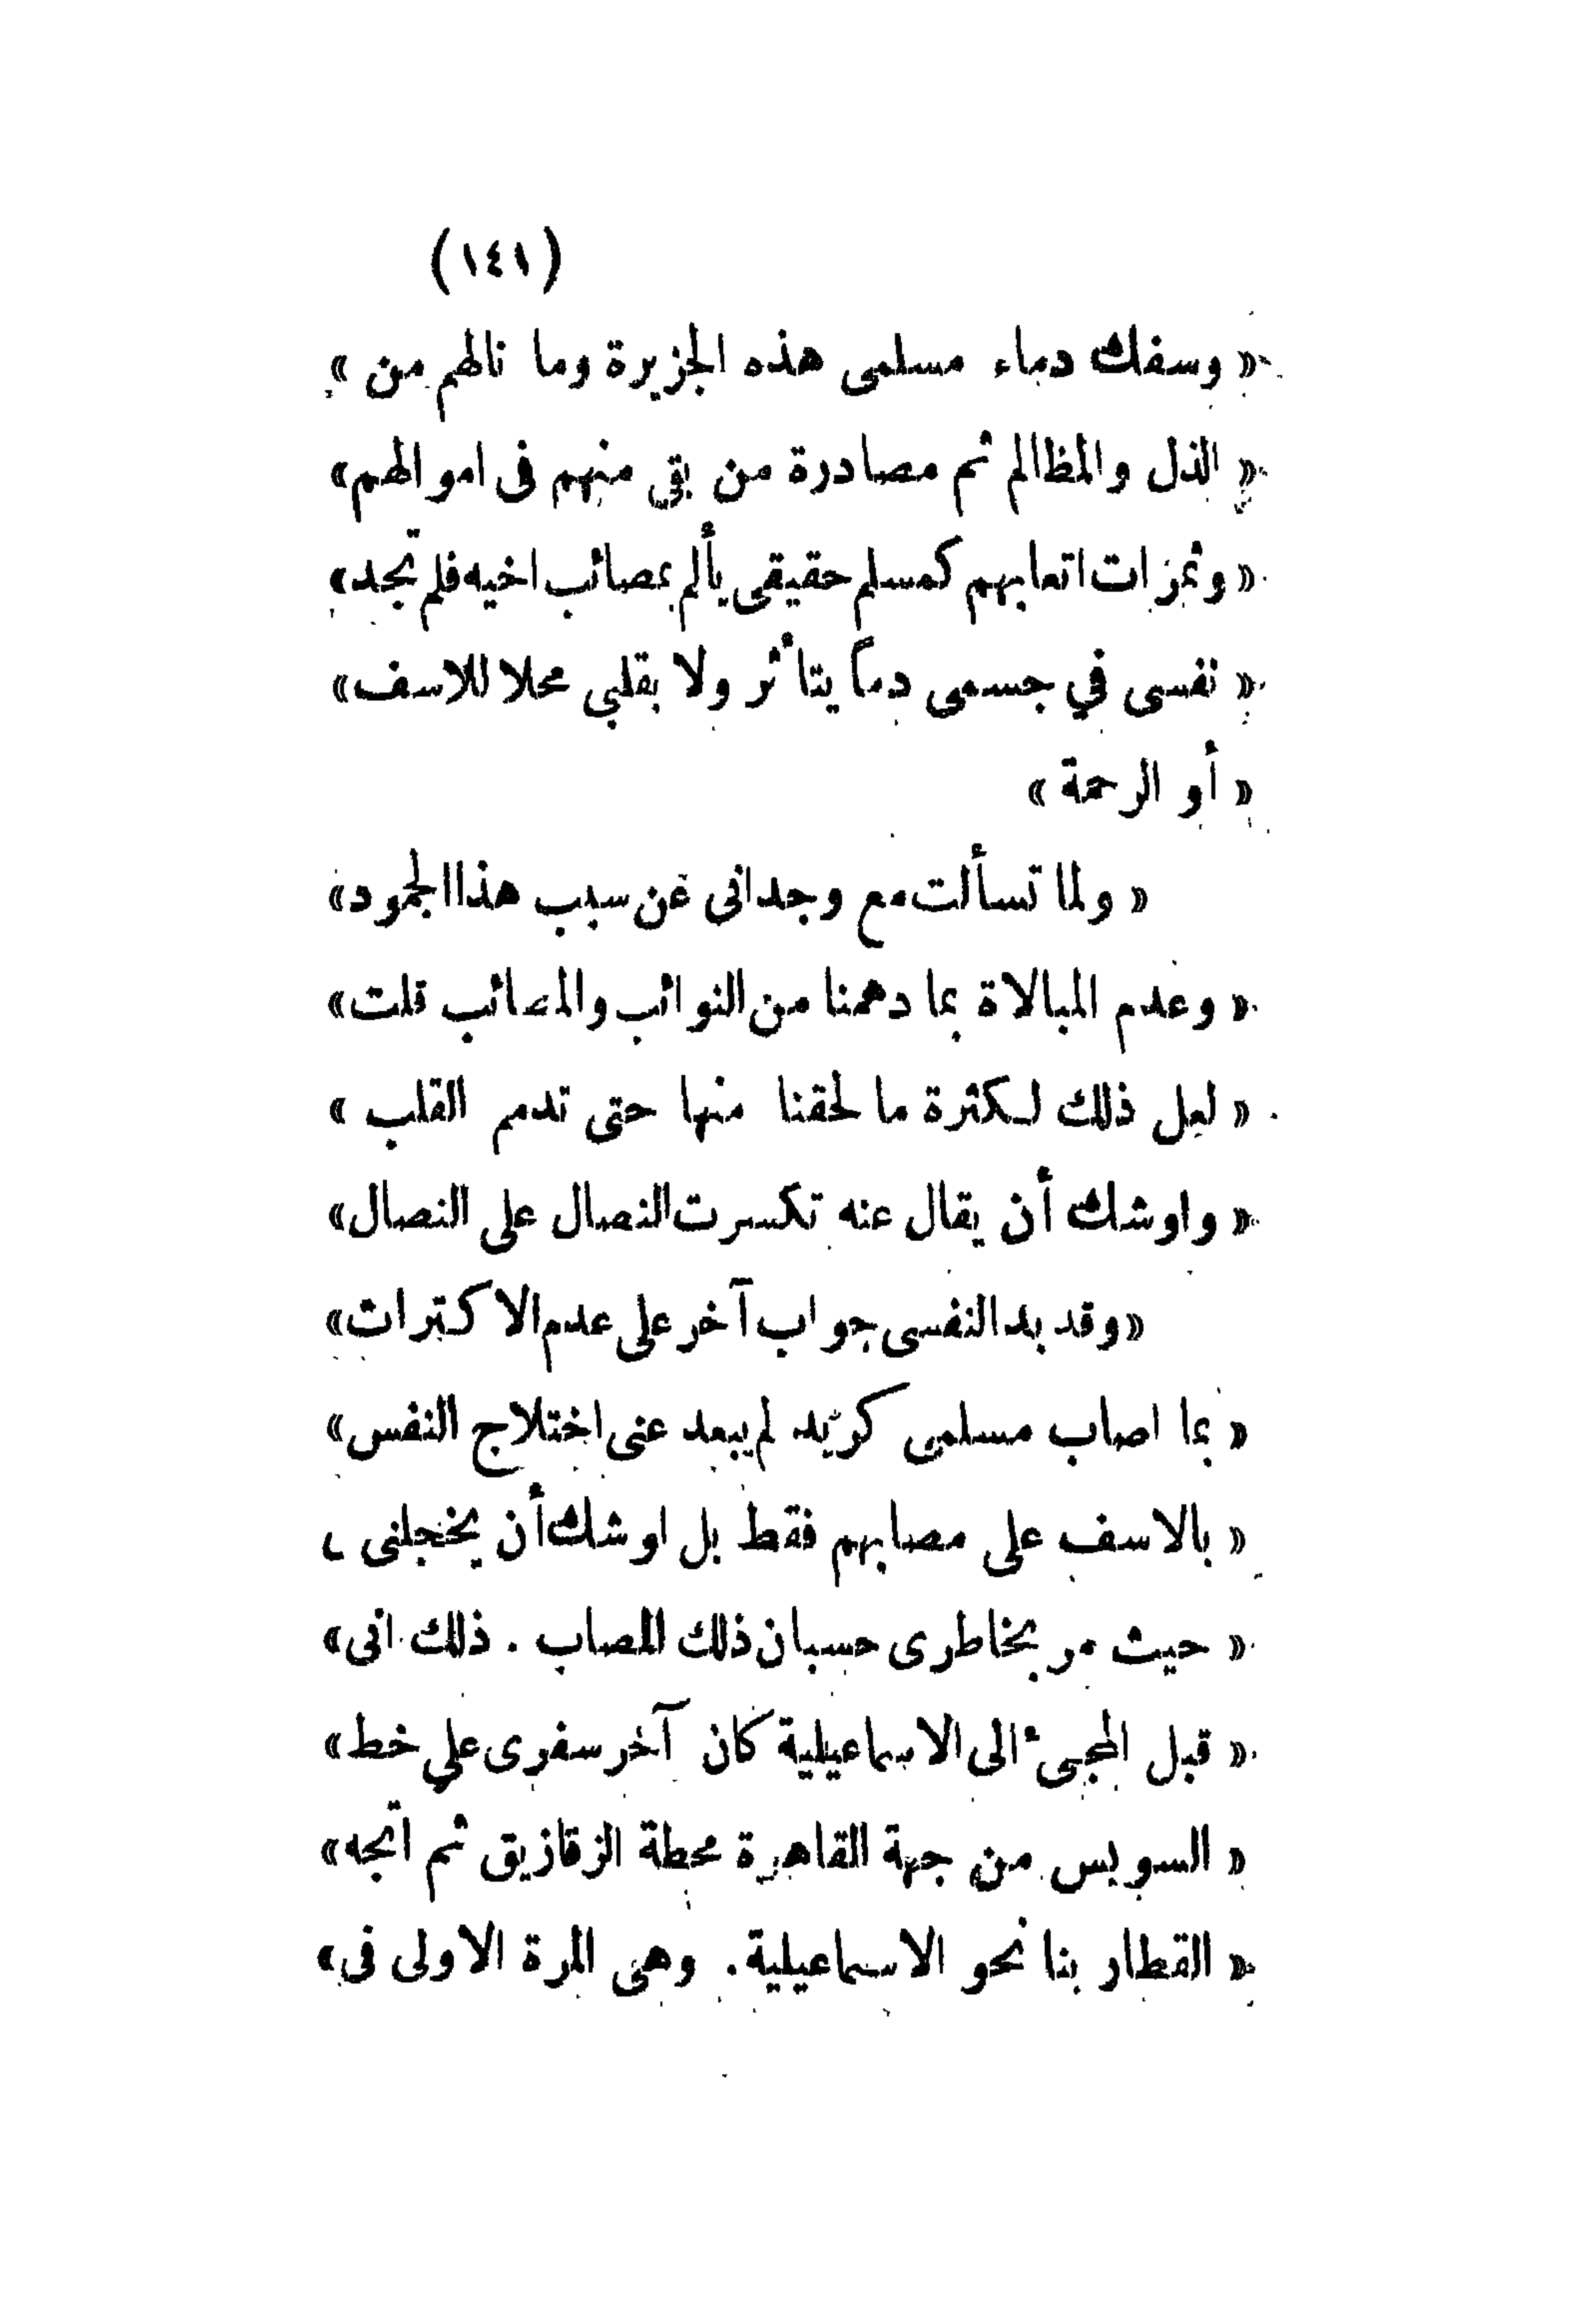 (١٤١)
« وسفك دماء مسلمى هذه الجزيرة وما نالهم من »
« الذل والمظالم ثم مصادرة من بقى منهم فى اموالهم»
« وثمرات اتعابهم كمسلم حقيقى يألم بمصائب اخيه فلم تجد»
« نفسى في جسمى دماً يتأثر ولا بقلبي محلا للاسف»
« أو الرحمة »
« ولما تسألت مع وجدانى عن سبب هذا الجمود»
« وعدم المبالاة بما دهمنا من النوائب والمصائب قلت»
« لعل ذلك لكثرة ما لحقنا منها حتى تدمم القلب »
« واوشك أن يقال عنه تكسرت النصال على النصال»
«وقد بدالنفسى جواب آخر على عدم الاكتراث»
« بما اصاب مسلمى كريد لم يبعد عنى اختلاج النفس»
« بالاسف على مصابهم فقط بل اوشك أن يخجلنى »
« حيث مر بخاطرى حسبان ذلك المصاب . ذلك انى»
« قبل المجىء الى الاسماعيلية كان آخر سفرى علي خط»
« السويس من جهة القاهرة محطة الزقازيق ثم اتجه»
« القطار بنا نحو الاسماعيلية. وهى المرة الاولى فى»